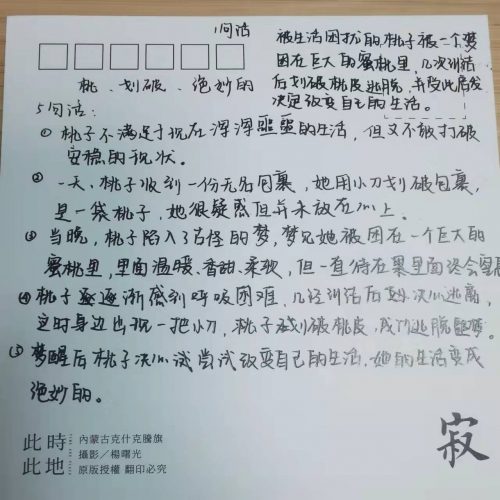 1句话
被生活困扰的桃子被一个梦
困在巨大的蜜桃里,几次纠结
后划破桃皮逃脱,并受此启发
决定改变自己的生活。
桃、划破、绝妙的
5句话:
① 桃子不满足于现在浑浑噩噩的生活,但又不敢打破
安稳的现状。
② 一天,桃子收到一份无名包裹,她用小刀划破包裹,
是一袋桃子,她很疑惑但并未放在心上。
③ 当晚,桃子陷入了古怪的梦,梦见她被困在一个巨大的
蜜桃里,里面温暖、香甜、柔软,但一直待在里面终会窒息
④ 桃子逐渐感到呼吸困难,几经纠结后决心逃离,
这时身边出现一把小刀,桃子划破桃皮,成功逃脱噩梦。
⑤ 梦醒后桃子决心尝试改变自己的生活,她的生活变成
绝妙的。
此時 內蒙古克什克騰旗
此地 攝影/楊曙光
原版授權 翻印必究
寂